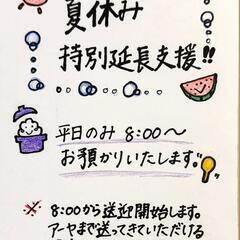 夏休み
特別延長支援!!
平日のみ 8:00〜
お預かりいたします。
※ 8:00から送迎開始します。
アーヤまで送ってきていただける